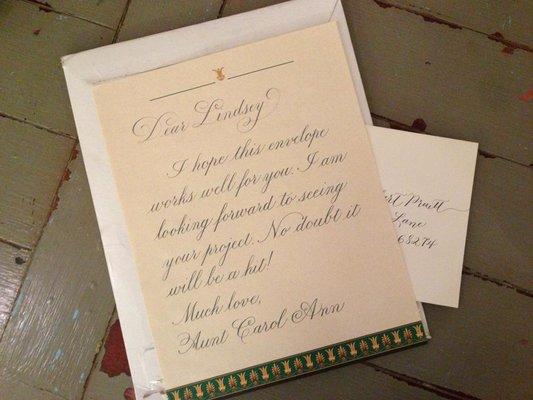 Dear Lindsey
I hope this envelope
works well for you. I am
looking forward to seeing
your project. No doubt it
will be a hit!
Much love,
Aunt Carol Ann
Pruitt
Lane
68274